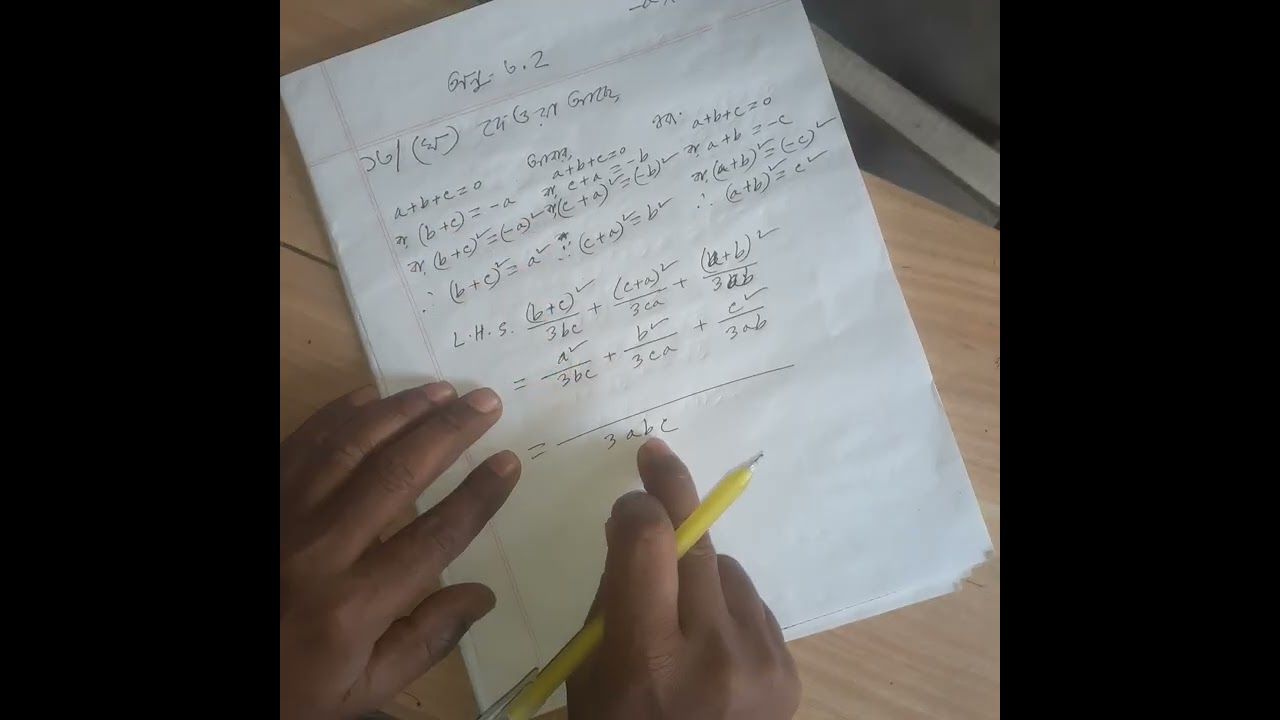 অনু- ৩.২
১৬/ (ঘ) দেওয়া আছে,
a+b+c=0
বা, (b+c) = -a
বা, (b+c)² = (-a)²
∴ (b+c)² = a²
আবার,
a+b+c=0
বা, c+a = -b
বা, (c+a)² = (-b)²
∴ (c+a)² = b²
a+b+c=0
বা, a+b = -c
বা, (a+b)² = (-c)²
∴ (a+b)² = c²
L.H.S. (b+c)²/3bc + (c+a)²/3ca + (a+b)²/3ab
= a²/3bc + b²/3ca + c²/3ab
= /3abc